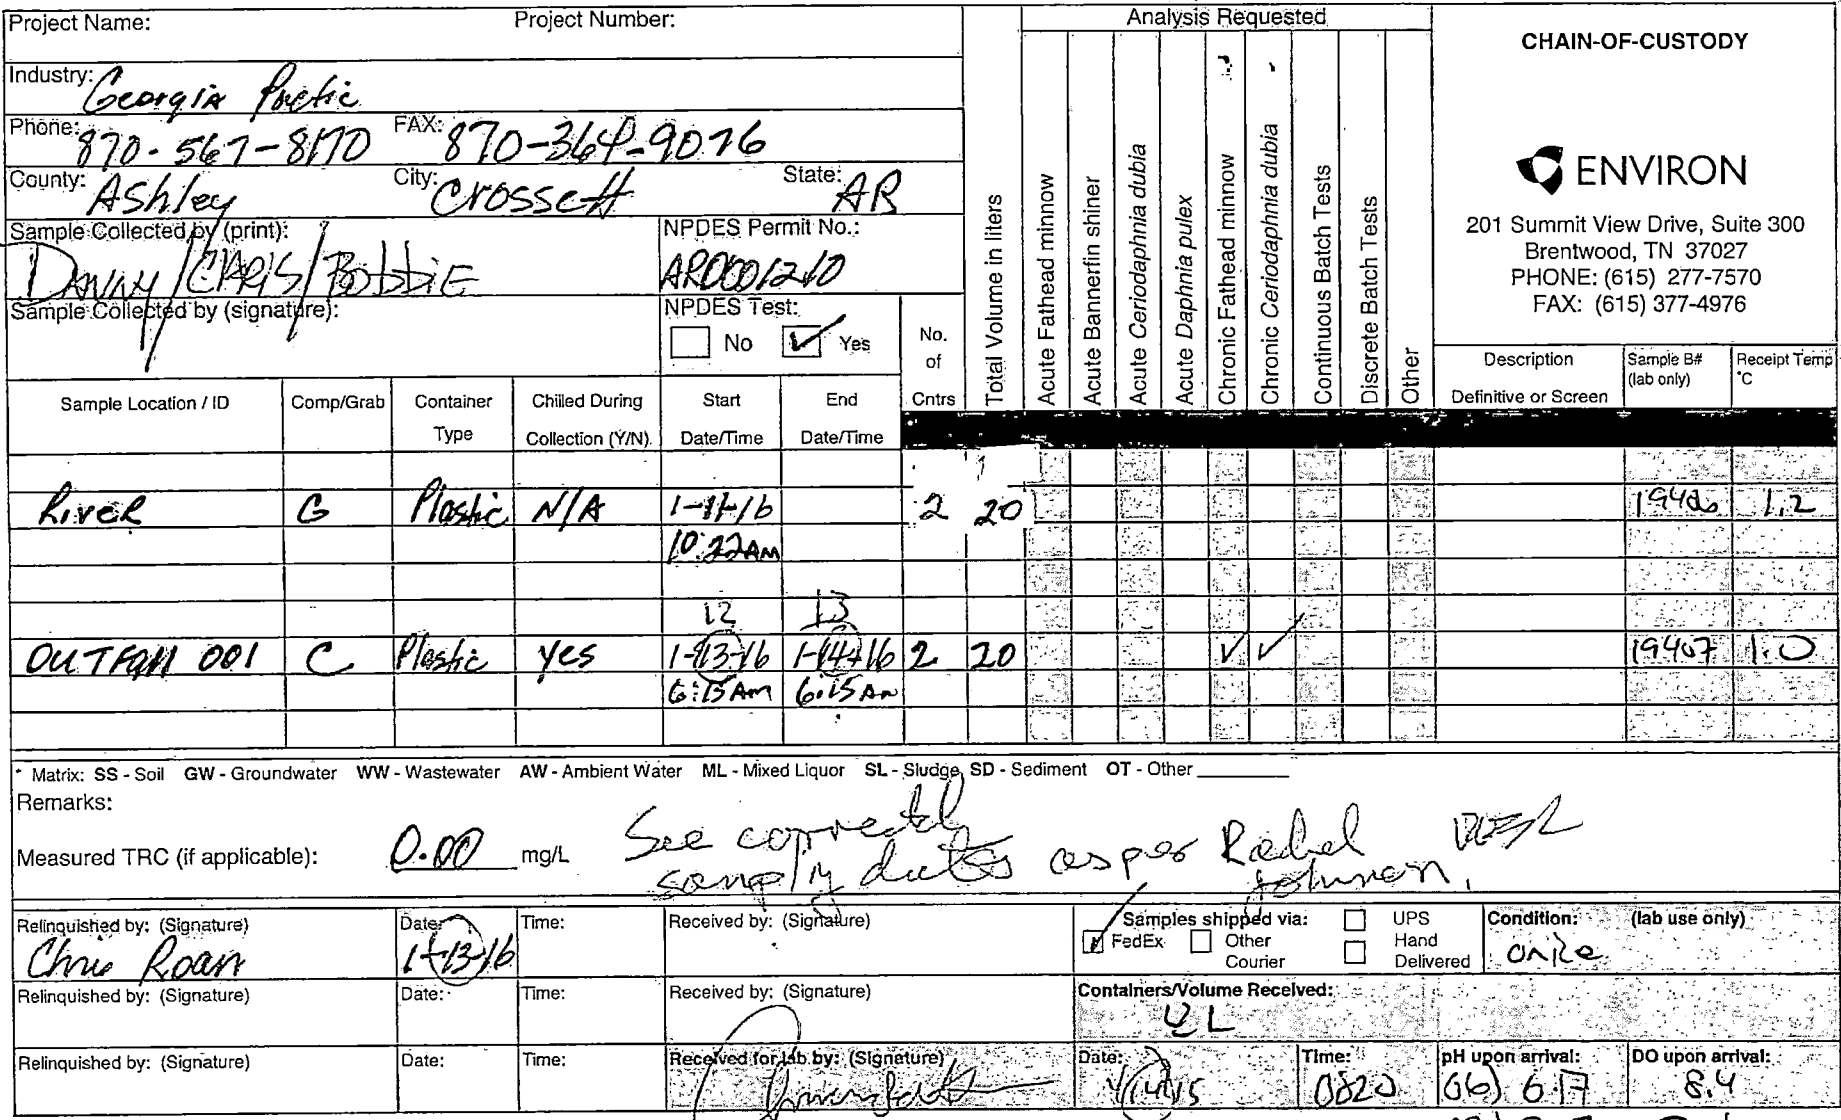 Project Name: Project Number:
Analysis Requested
CHAIN-OF-CUSTODY
Industry: Georgia Pacific
Phone: 870-567-8170 FAX: 870-364-9076
County: Ashley City: Crossett State: AR
Sample Collected by (print): DANNY/CHRIS/BobbiE
NPDES Permit No.: AR0001210
Sample Collected by (signature):
NPDES Test: No ✓ Yes
ENVIRON
201 Summit View Drive, Suite 300
Brentwood, TN 37027
PHONE: (615) 277-7570
FAX: (615) 377-4976
Sample Location / ID
Comp/Grab
Container Type
Chilled During Collection (Y/N)
Start Date/Time
End Date/Time
No. of Cntrs
Total Volume in liters
Acute Fathead minnow
Acute Bannerfin shiner
Acute Ceriodaphnia dubia
Acute Daphnia pulex
Chronic Fathead minnow
Chronic Ceriodaphnia dubia
Continuous Batch Tests
Discrete Batch Tests
Other
Description Definitive or Screen
Sample B# (lab only)
Receipt Temp °C
RiveR G Plastic N/A 1-11-16 2 20 19406 1.2
10:22AM
12 13
OUTFAll 001 C Plastic yes 1-13-16 1-14-16 2 20 ✓ ✓ 19407 1.0
6:15AM 6:15AM
* Matrix: SS - Soil GW - Groundwater WW - Wastewater AW - Ambient Water ML - Mixed Liquor SL - Sludge, SD - Sediment OT - Other
Remarks:
Measured TRC (if applicable): 0.00 mg/L
See corrected
sampling dates as per Rachel
Johnson,
Relinquished by: (Signature) Chris Roan
Date: 1-13-16
Time:
Received by: (Signature)
Samples shipped via: ✓ FedEx Other Courier UPS Hand Delivered
Condition: (lab use only) on ice
Relinquished by: (Signature) Date: Time: Received by: (Signature)
Containers/Volume Received:
Relinquished by: (Signature) Date: Time: Received for lab by: (Signature)
Date: 1/14/15
Time: 0820
pH upon arrival: (06) 6.17
DO upon arrival: 8.4